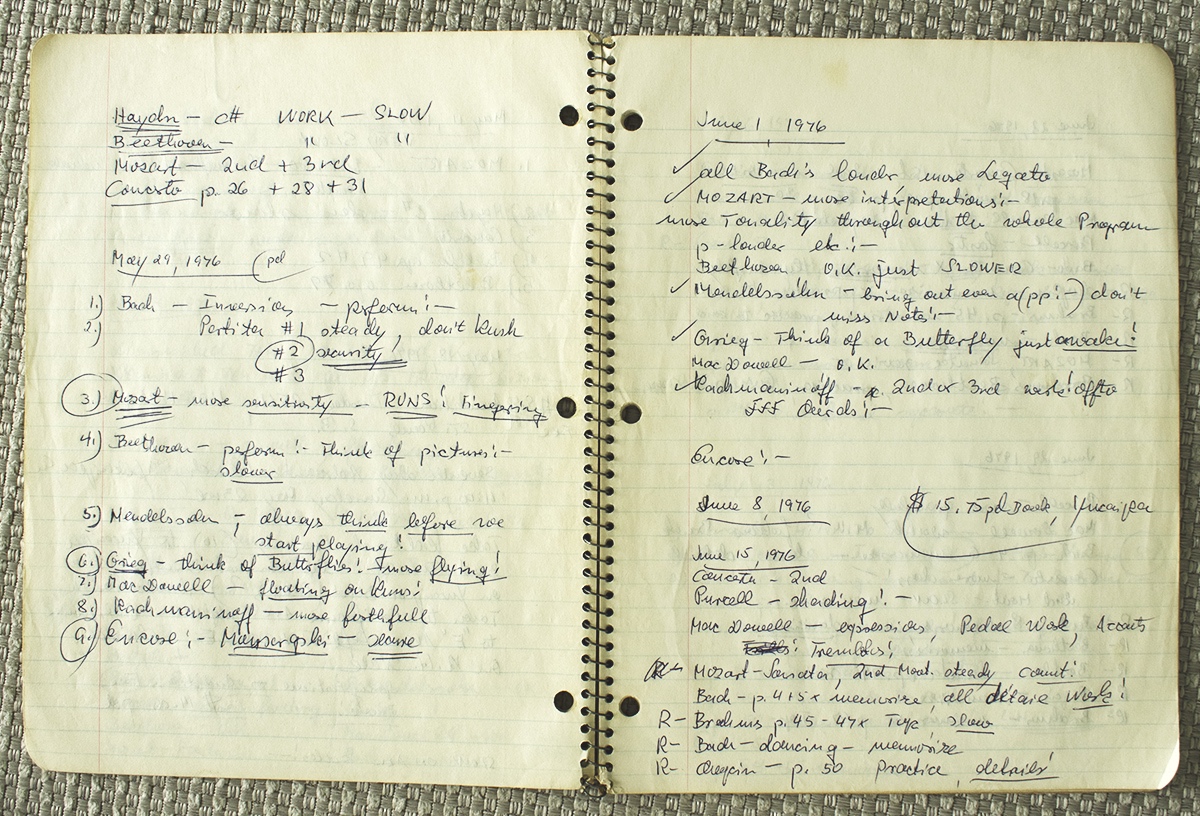 Haydn – C# WORK – SLOW
Beethoven – " "
Mozart – 2nd + 3rd
Concerto p. 26 + 28 + 31
May 29, 1976 (pd
1.) Bach – Invession – perform!–
2.) Partita #1 steady, don't Rush
#2 security!
#3
3.) Mozart – more sensitivity – RUNS! Fingering
4.) Beethoven – perform!– Think of pictures!–
slower
5.) Mendelssohn – always think before we
start playing!
6.) Grieg – think of Butterflies! more flying!
7.) Mac Dowell – floating on Runs!
8.) Rachmaninoff – more forthfull
9.) Encore!– Mussorgski – secure
June 1, 1976
all Bach's louder more Legato
MOZART – more interpretations!–
more Tonality throughout the whole Program
p – louder etc!–
Beethoven O.K. just SLOWER
Mendelssohn – bring out even a (pp!–) don't
miss Notes!–
Grieg – Think of a Butterfly just awake!
Mac Dowell – O.K.
Rachmaninoff – 2nd x 3rd
FFF Chords!–
Encore!–
June 8, 1976
$ 15.75 pd Book, Yucaipa
June 15, 1976
Concerto – 2nd
Purcell – shading!–
Mac Dowell – expession, Pedal Work,
Tremolos!
Mozart – Sonata 2nd Mov. steady count!
Bach – p. 4 + 5 x memorize, all detaie work!
R – Brahms p. 45 – 47 x slow
R – Bach – dancing – memorize
R – p. 50 practice, details!